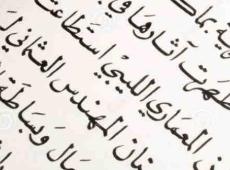 ية بما
ظهرت آثارها في
المعماري الليبي استطاعت
نان المهندس العثماني ل
مال وبساطة